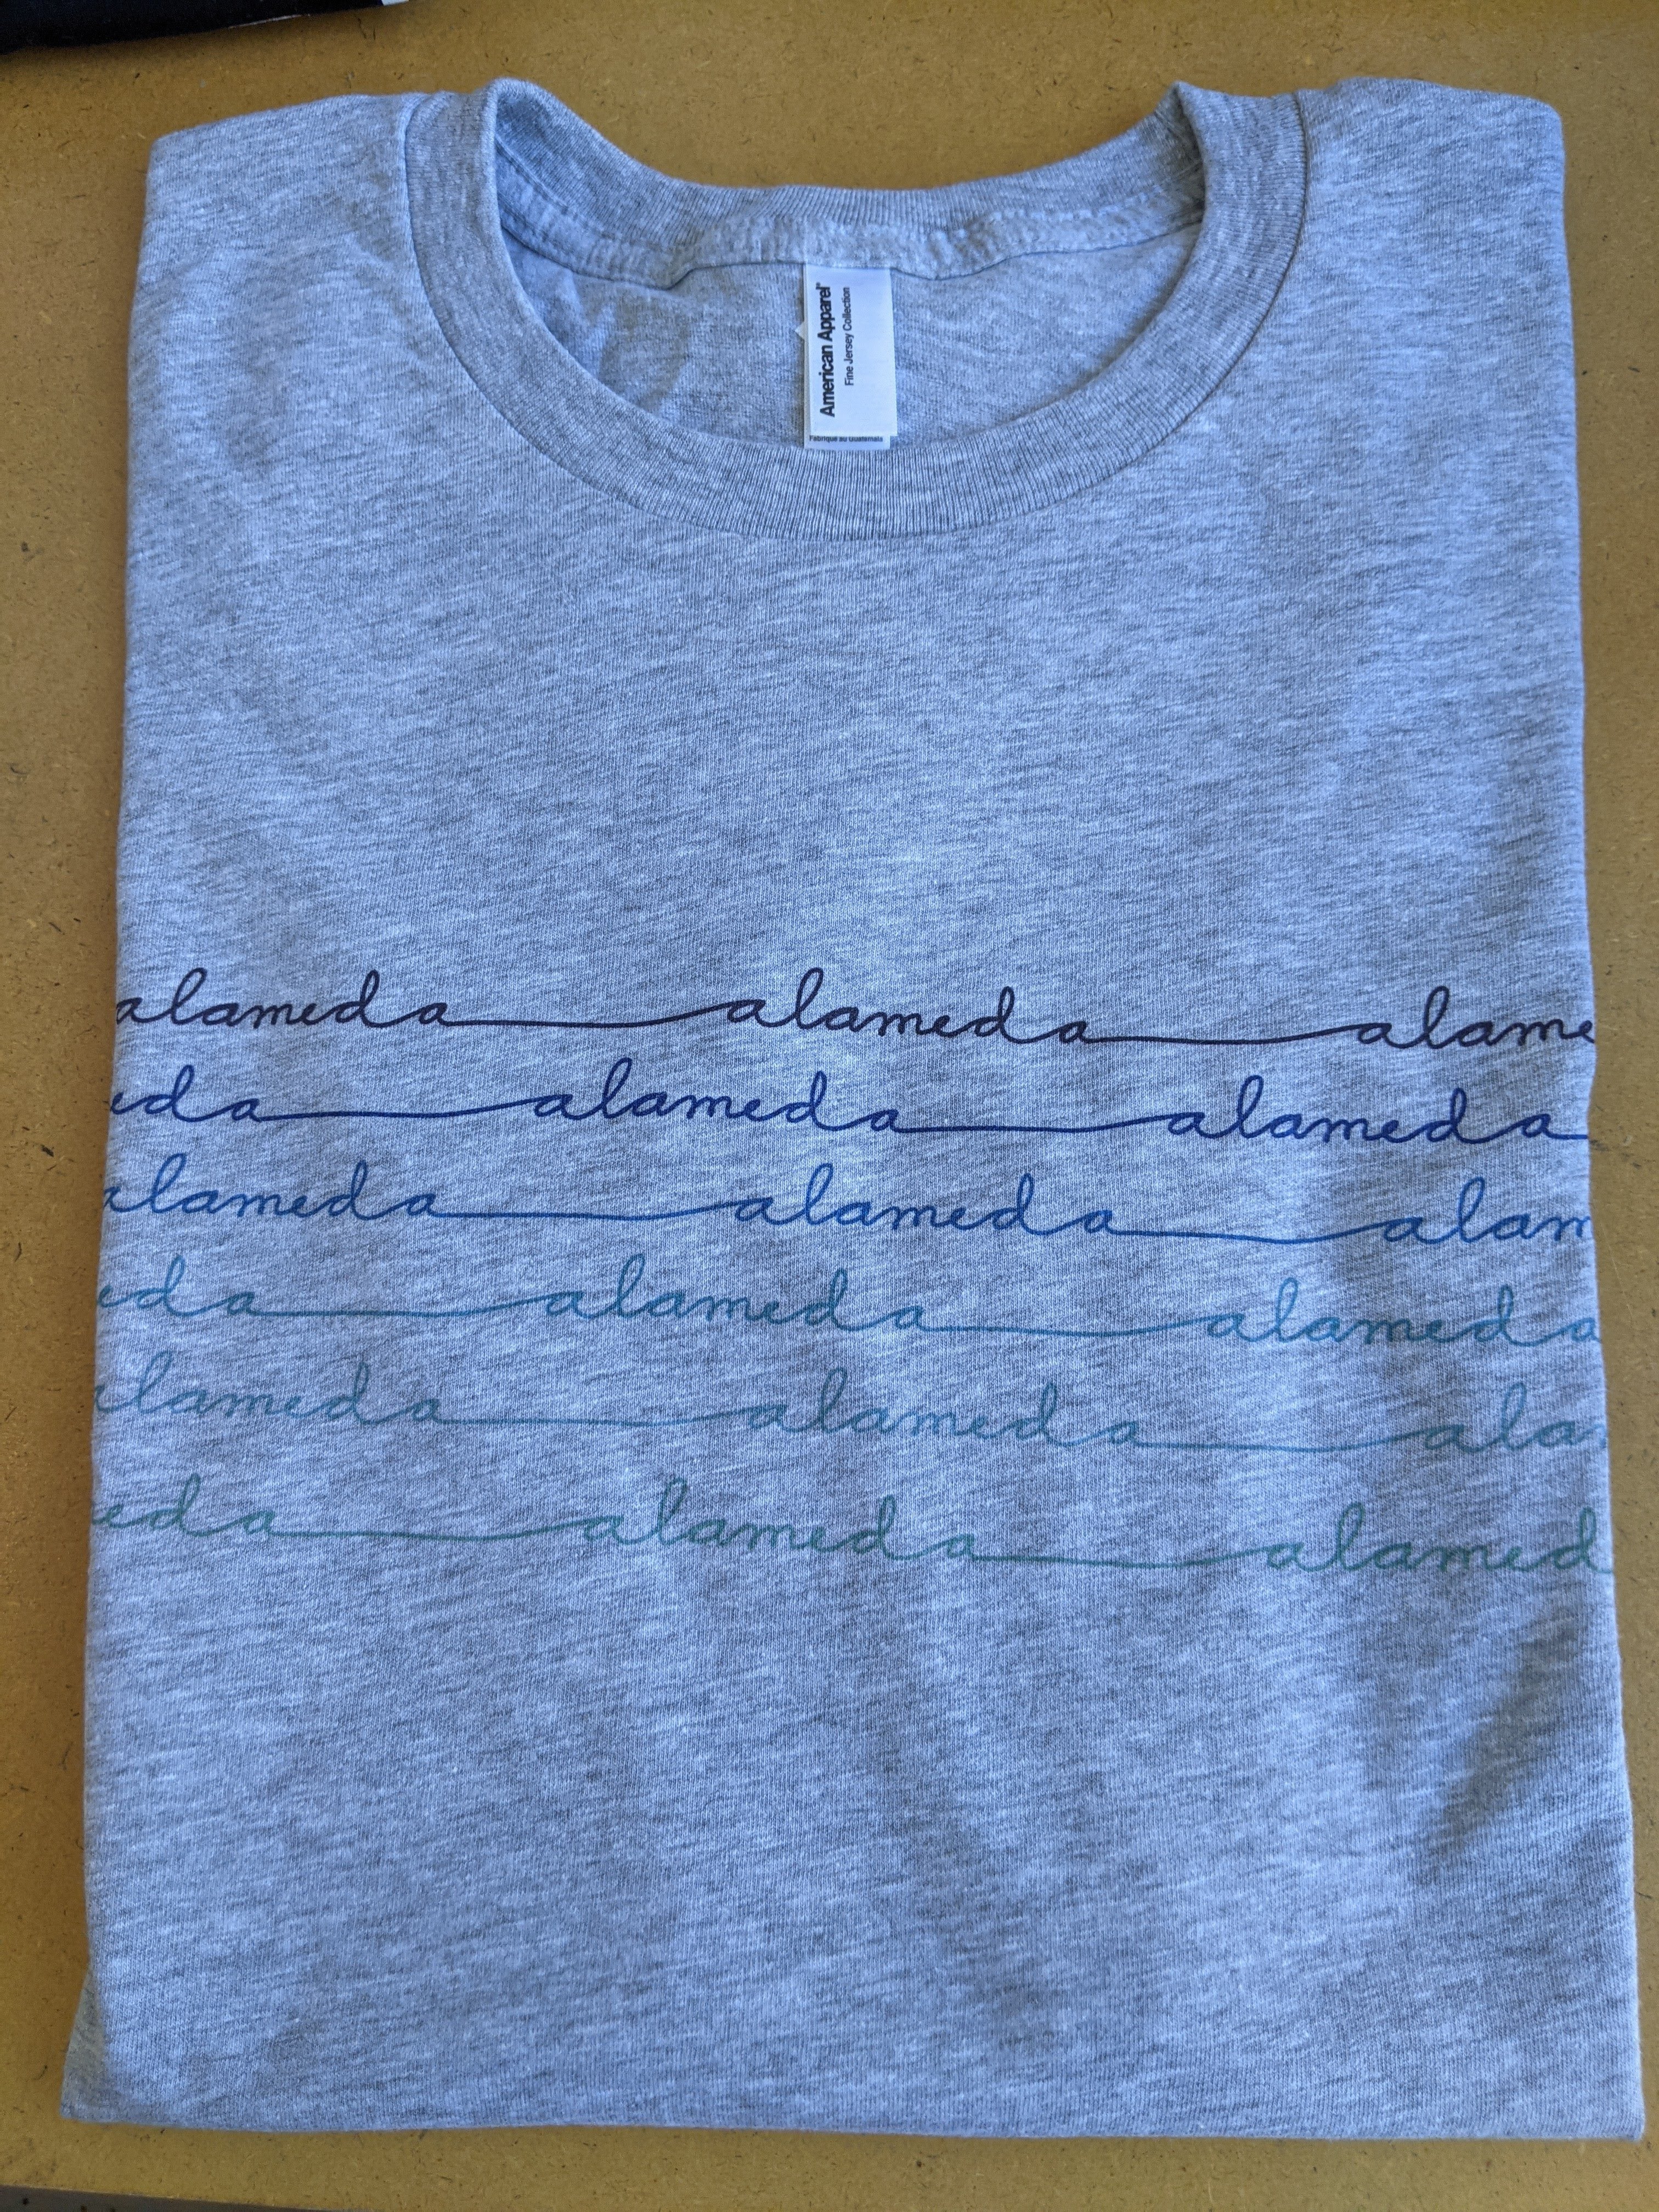 American Apparel
Fine Jersey Collection
Fabriqué au Guatemala
alameda alameda alame
eda alameda alameda
alameda alameda alam
eda alameda alameda
alameda alameda ala
eda alameda alamed